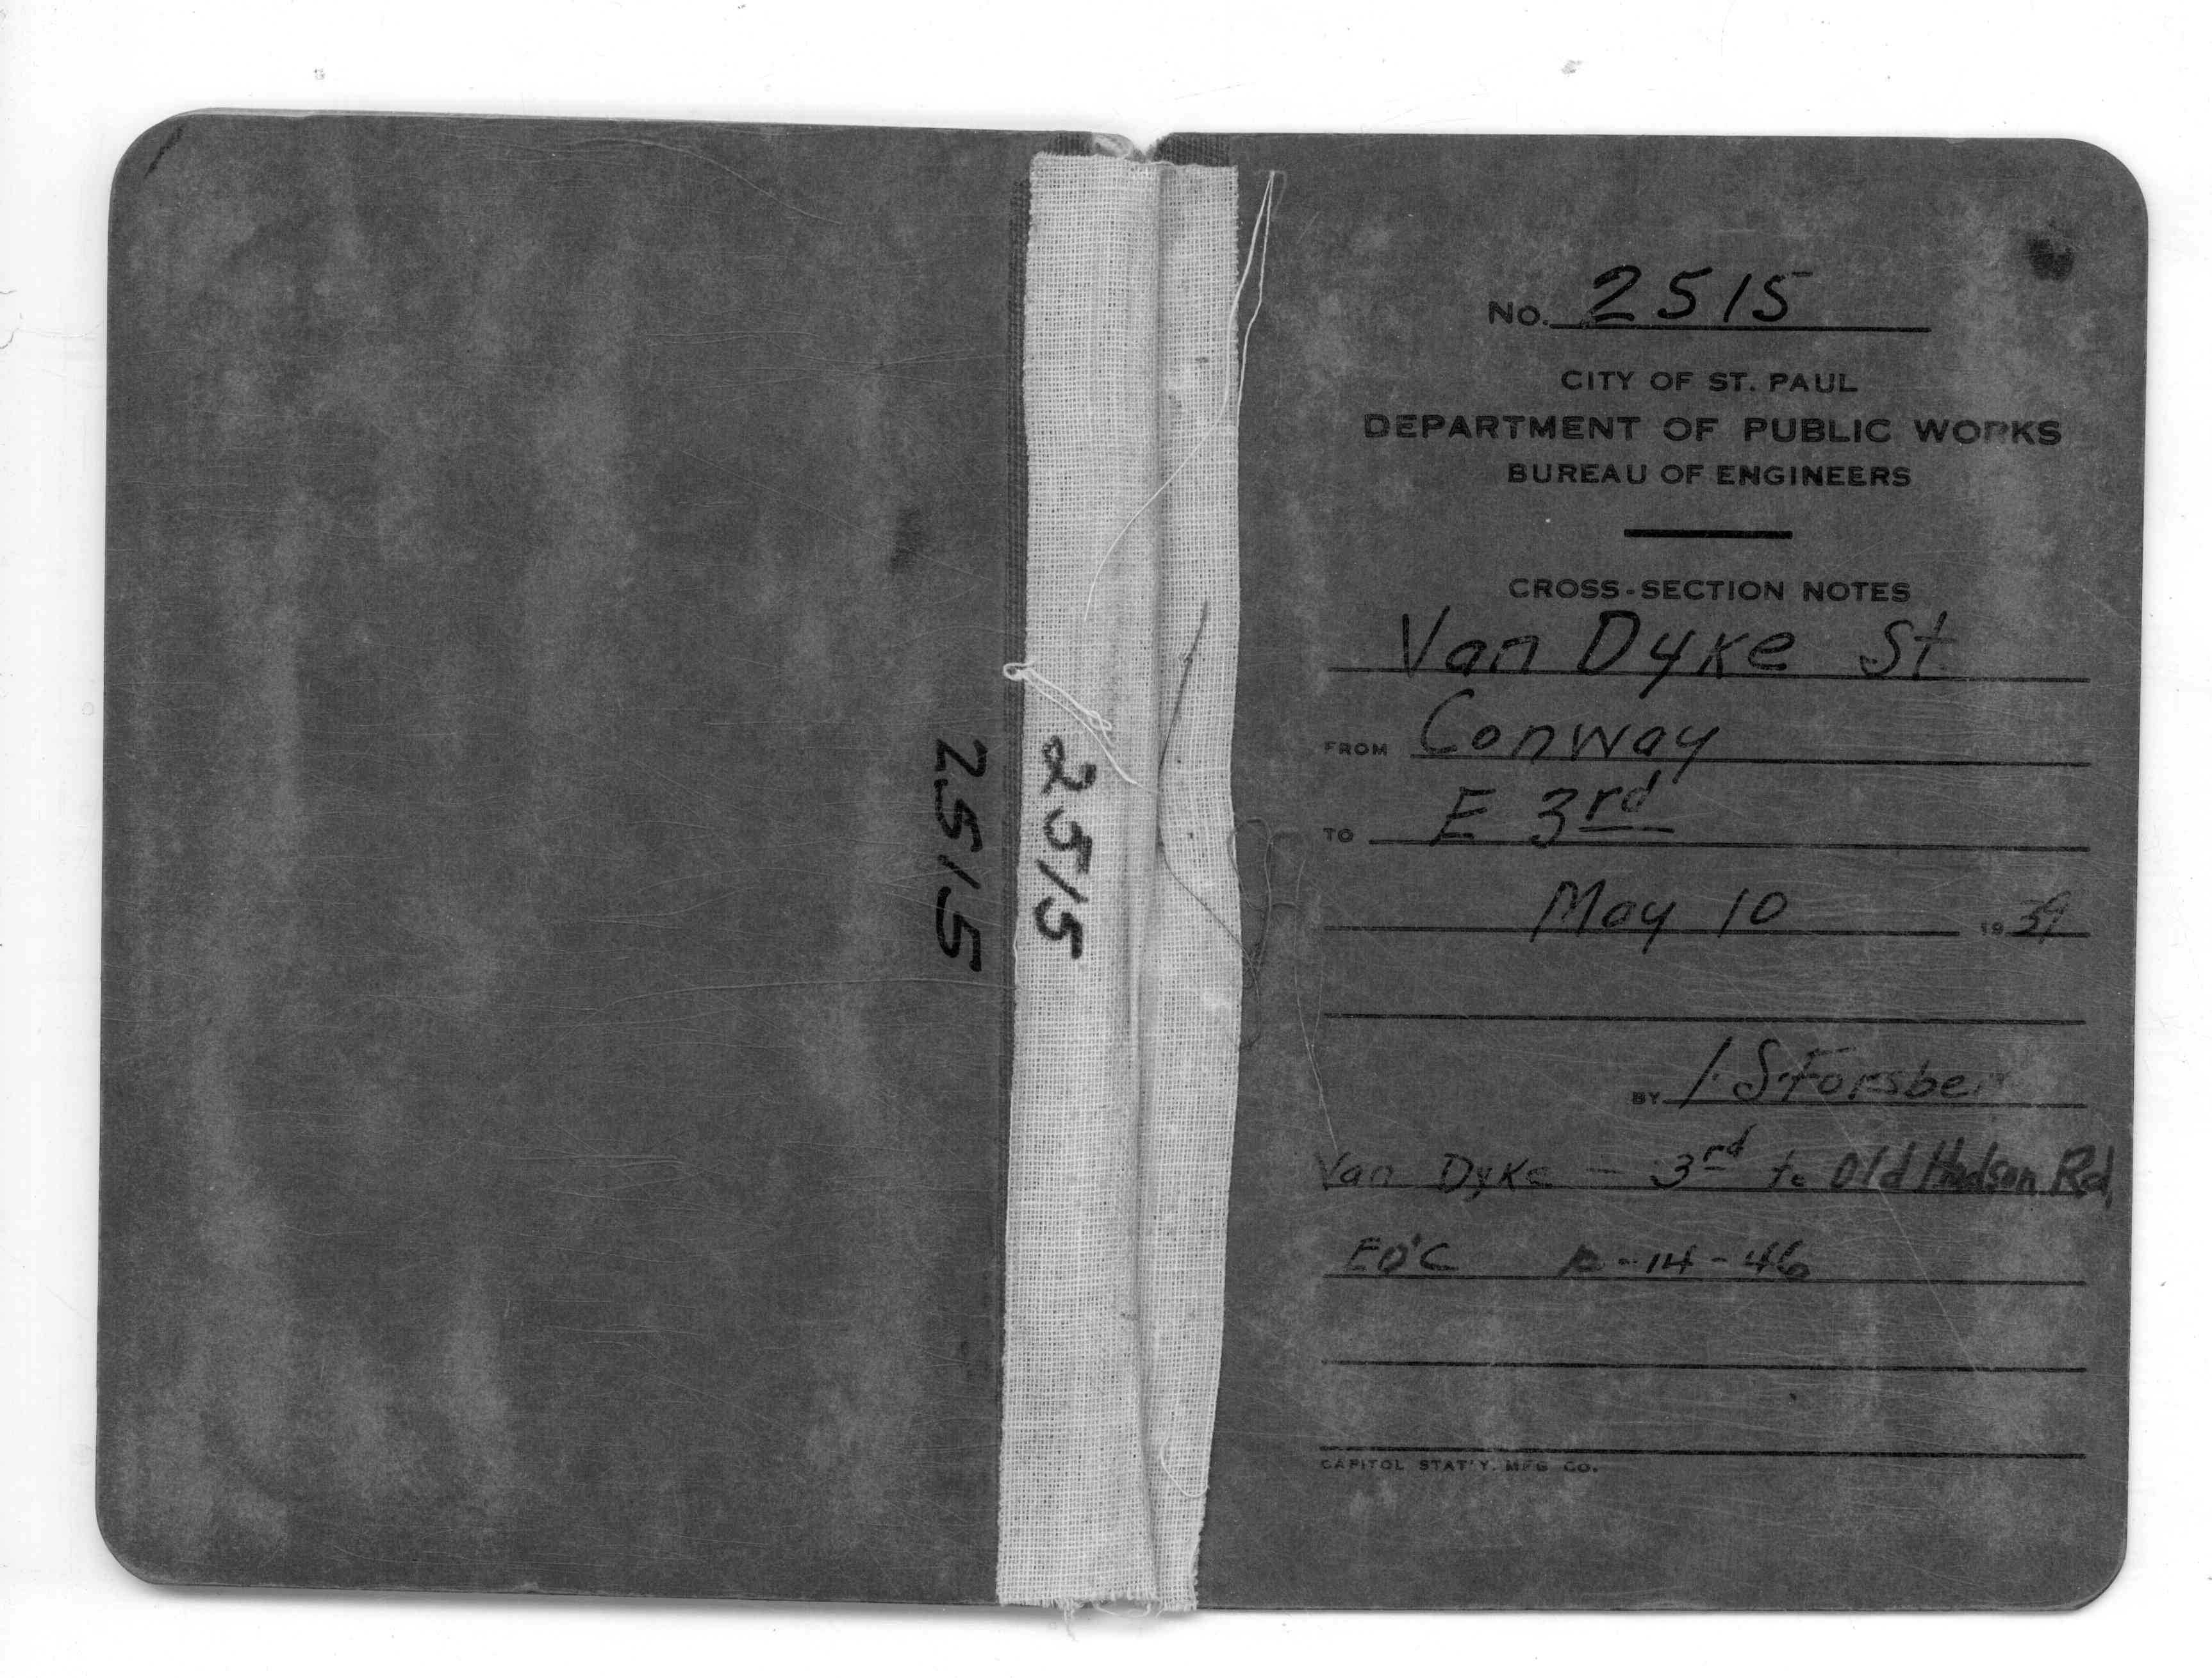 2515
2515
No. 2515
CITY OF ST. PAUL
DEPARTMENT OF PUBLIC WORKS
BUREAU OF ENGINEERS
CROSS-SECTION NOTES
Van Dyke St
FROM Conway
TO E 3rd
May 10 1939
BY I. S. Forsber
Van Dyke - 3rd to Old Hudson Rd,
EO'C -14-46
CAPITOL STAT'Y. MFG CO.